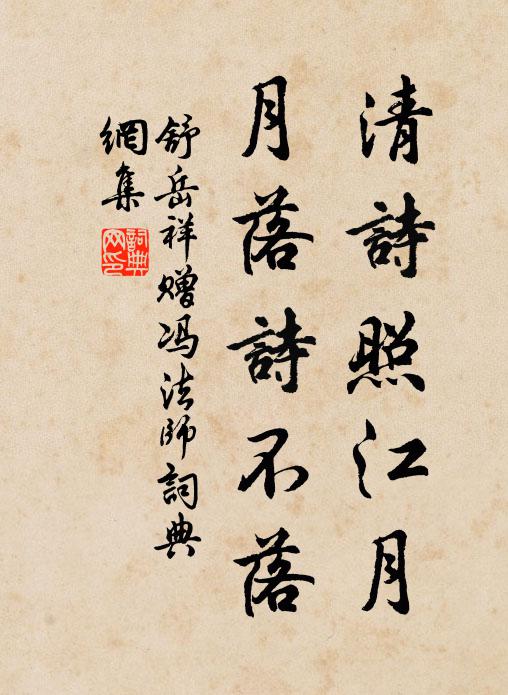 清詩照江月
月落詩不落
舒岳祥赠冯法師詞典
網集
詞典
网印